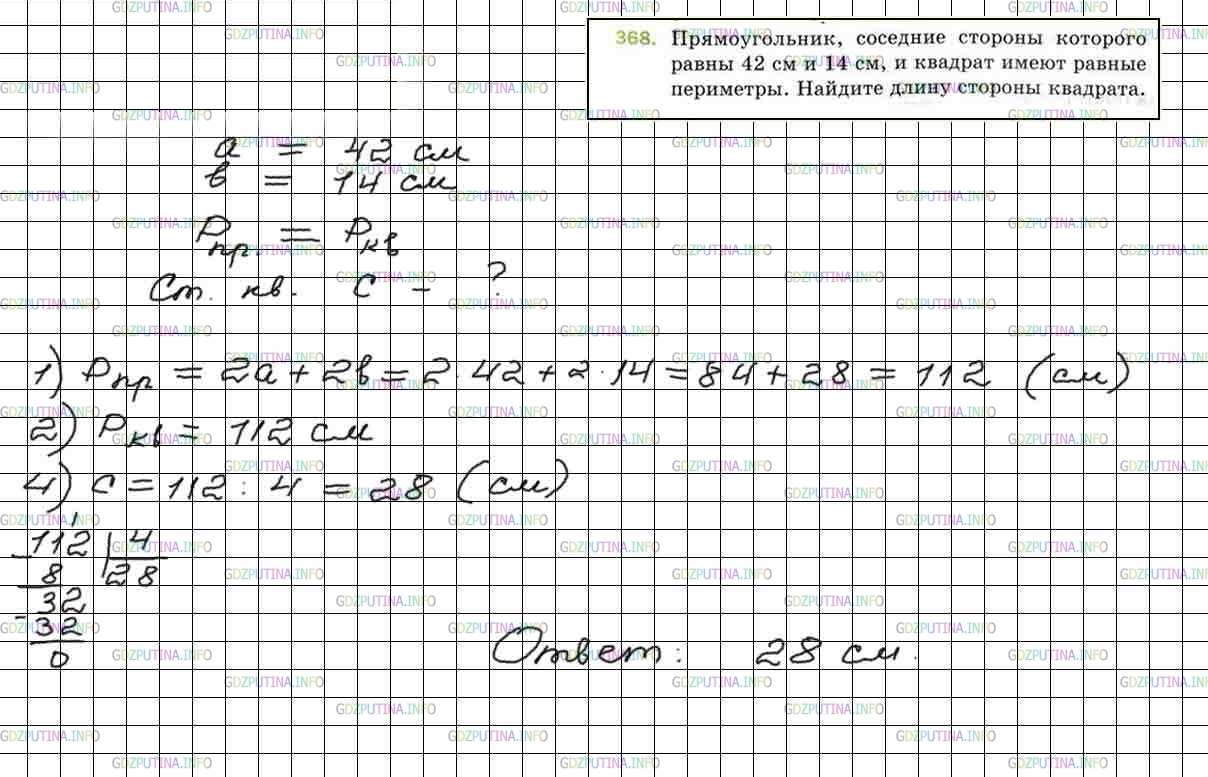 368. Прямоугольник, соседние стороны которого
равны 42 см и 14 см, и квадрат имеют равные
периметры. Найдите длину стороны квадрата.
a = 42 см
в = 14 см
Pпр. = Pкв
Ст. кв. c - ?
1) Pпр = 2a + 2в = 2·42 + 2·14 = 84 + 28 = 112 (см)
2) Pкв = 112 см
4) c = 112 : 4 = 28 (см)
112 | 4
8 | 28
32
32
0
Ответ: 28 см.
GDZPUTINA.INFO